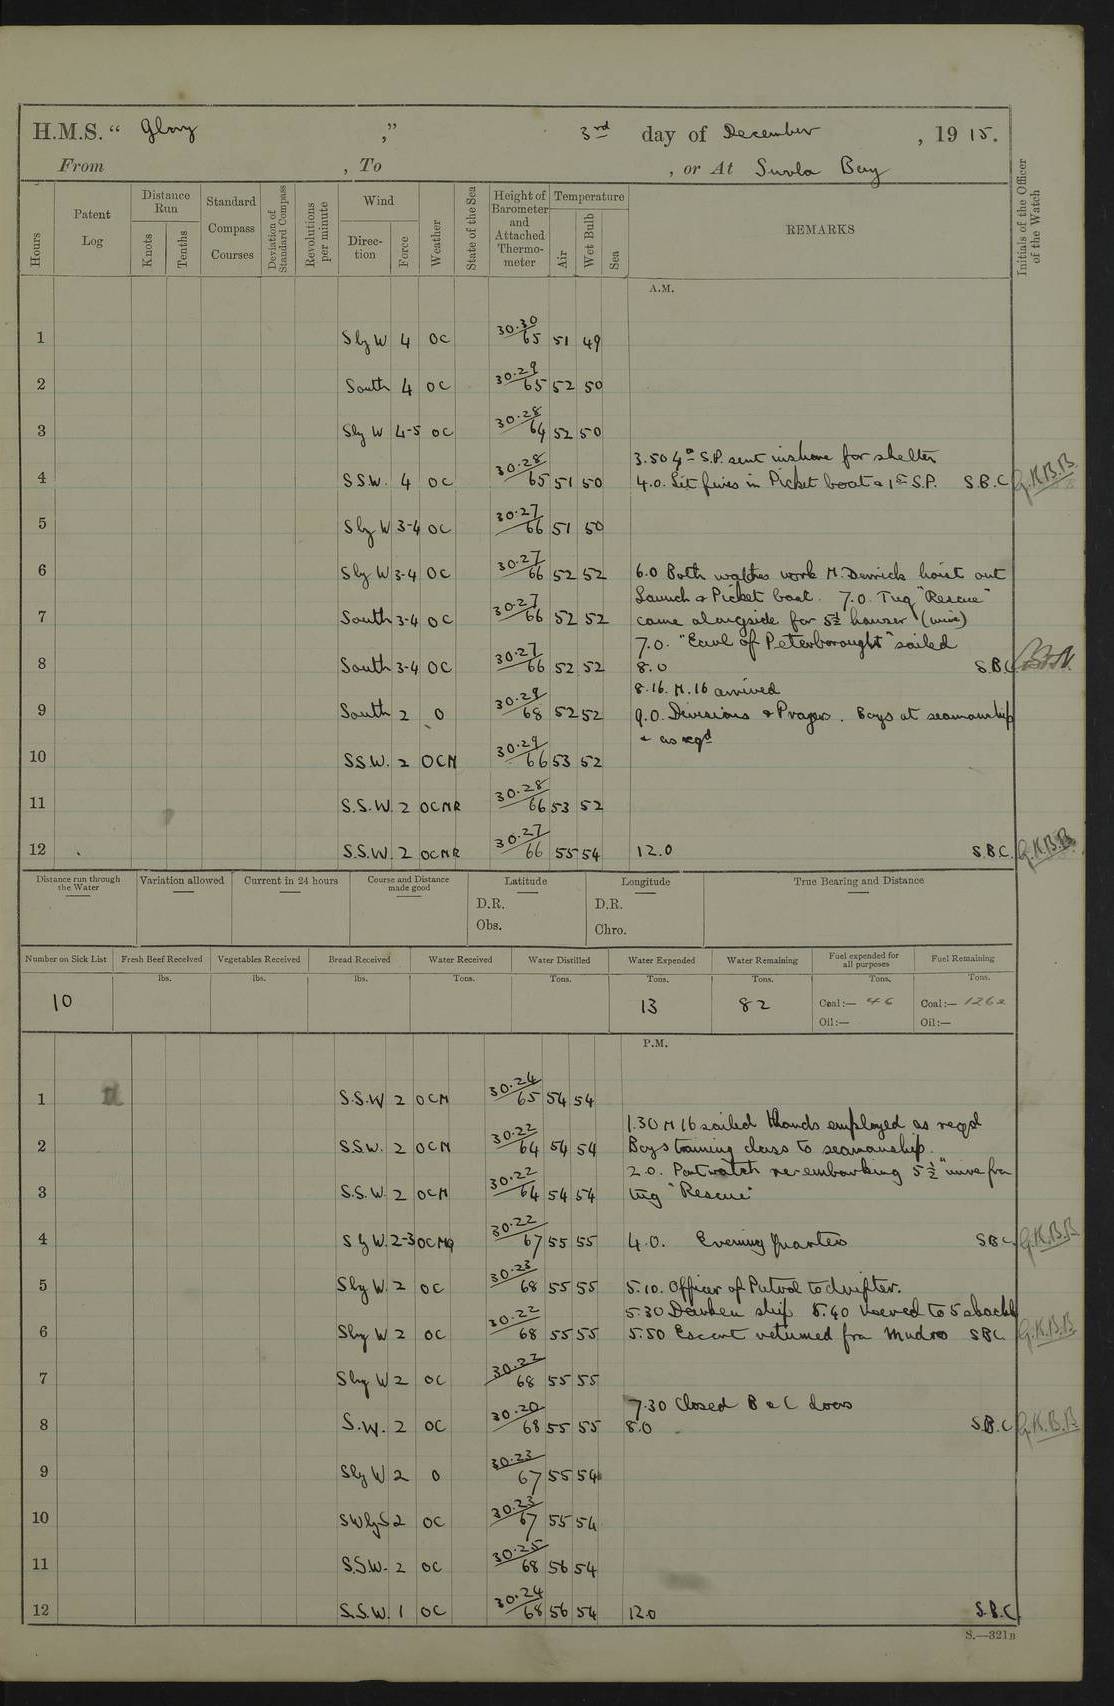 H.M.S. “ Glory ,” 3rd day of December , 19 15.
From , To , or At Suvla Bay
Hours
Patent Log
Distance Run
Knots
Tenths
Standard Compass Courses
Deviation of Standard Compass
Revolutions per minute
Wind
Direc-tion
Force
Weather
State of the Sea
Height of Barometer and Attached Thermo-meter
Temperature
Air
Wet Bulb
Sea
REMARKS
Initials of the Officer of the Watch
A.M.
1 SlyW 4 OC 30.30/65 51 49
2 South 4 OC 30.29/65 52 50
3 SlyW 4-5 OC 30.28/64 52 50
3.50 S.P. sent inshore for shelter
4 S.S.W. 4 OC 30.28/65 51 50 4.0. Lit fires in Picket boat & 1st S.P. S.B.C G.K.B.B.
5 SlyW 3-4 OC 30.27/66 51 50
6 SlyW 3-4 OC 30.27/66 52 52 6.0 Both watches work M. Derrick hoist out
Launch & Picket boat. 7.0. Tug "Rescue"
7 South 3-4 OC 30.27/66 52 52 came alongside for 5½ hawser (wire)
7.0. "Earl of Peterborough" sailed
8 South 3-4 OC 30.27/66 52 52 8.0 S.B.C
8.16. M.16 arrived
9 South 2 O 30.29/68 52 52 9.0. Divisions & Prayers. Boys at seamanship
& as reqd
10 SS.W. 2 OCM 30.29/66 53 52
11 S.S.W. 2 OCMR 30.28/66 53 52
12 S.S.W. 2 OCMR 30.27/66 55 54 12.0 S.B.C. G.K.B.B.
Distance run through the Water
Variation allowed
Current in 24 hours
Course and Distance made good
Latitude
D.R.
Obs.
Longitude
D.R.
Chro.
True Bearing and Distance
Number on Sick List
Fresh Beef Received
Vegetables Received
Bread Received
Water Received
Water Distilled
Water Expended
Water Remaining
Fuel expended for all purposes
Fuel Remaining
lbs. lbs. lbs. Tons. Tons. Tons. Tons. Tons. Tons.
10 13 82 Coal:— 46 Coal:— 1262
Oil:— Oil:—
P.M.
1 S.S.W 2 OCM 30.24/65 54 54
1.30 M16 sailed Hands employed as reqd
2 S.S.W. 2 OCM 30.22/64 54 54 Boys training class to seamanship.
2.0. Port watch re-embarking 5½" wire frm
3 S.S.W. 2 OCM 30.22/64 54 54 tug "Rescue"
4 SlyW. 2-3 30.22/67 55 55 4.0. Evening quarters SBC. G.K.B.B
5 SlyW. 2 OC 30.23/68 55 55 5.10. Officer of Patrol to drifter.
5.30 Darken ship 5.40 Veered to 5 shackls
6 SlyW 2 OC 30.22/68 55 55 5.50 Escort returned frm Mudros SBC G.K.B.B
7 SlyW 2 OC 30.22/68 55 55
7.30 Closed B & C doors
8 S.W. 2 OC 30.20/68 55 55 8.0 S.B.C G.K.B.B
9 SlyW 2 O 30.23/67 55 54
10 SWlyS 2 OC 30.23/67 55 54
11 S.S.W. 2 OC 30.25/68 56 54
12 S.S.W. 1 OC 30.24/68 56 54 12.0 S.B.C.
S.—321B